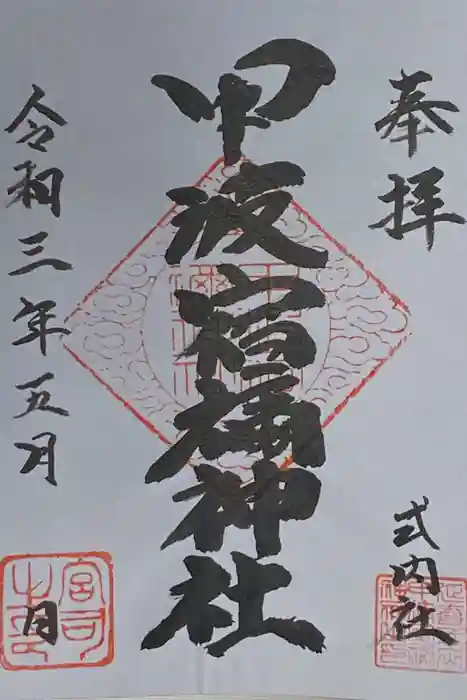 奉拝
式内社
甲波宿禰神社
令和三年五月 日
宮司